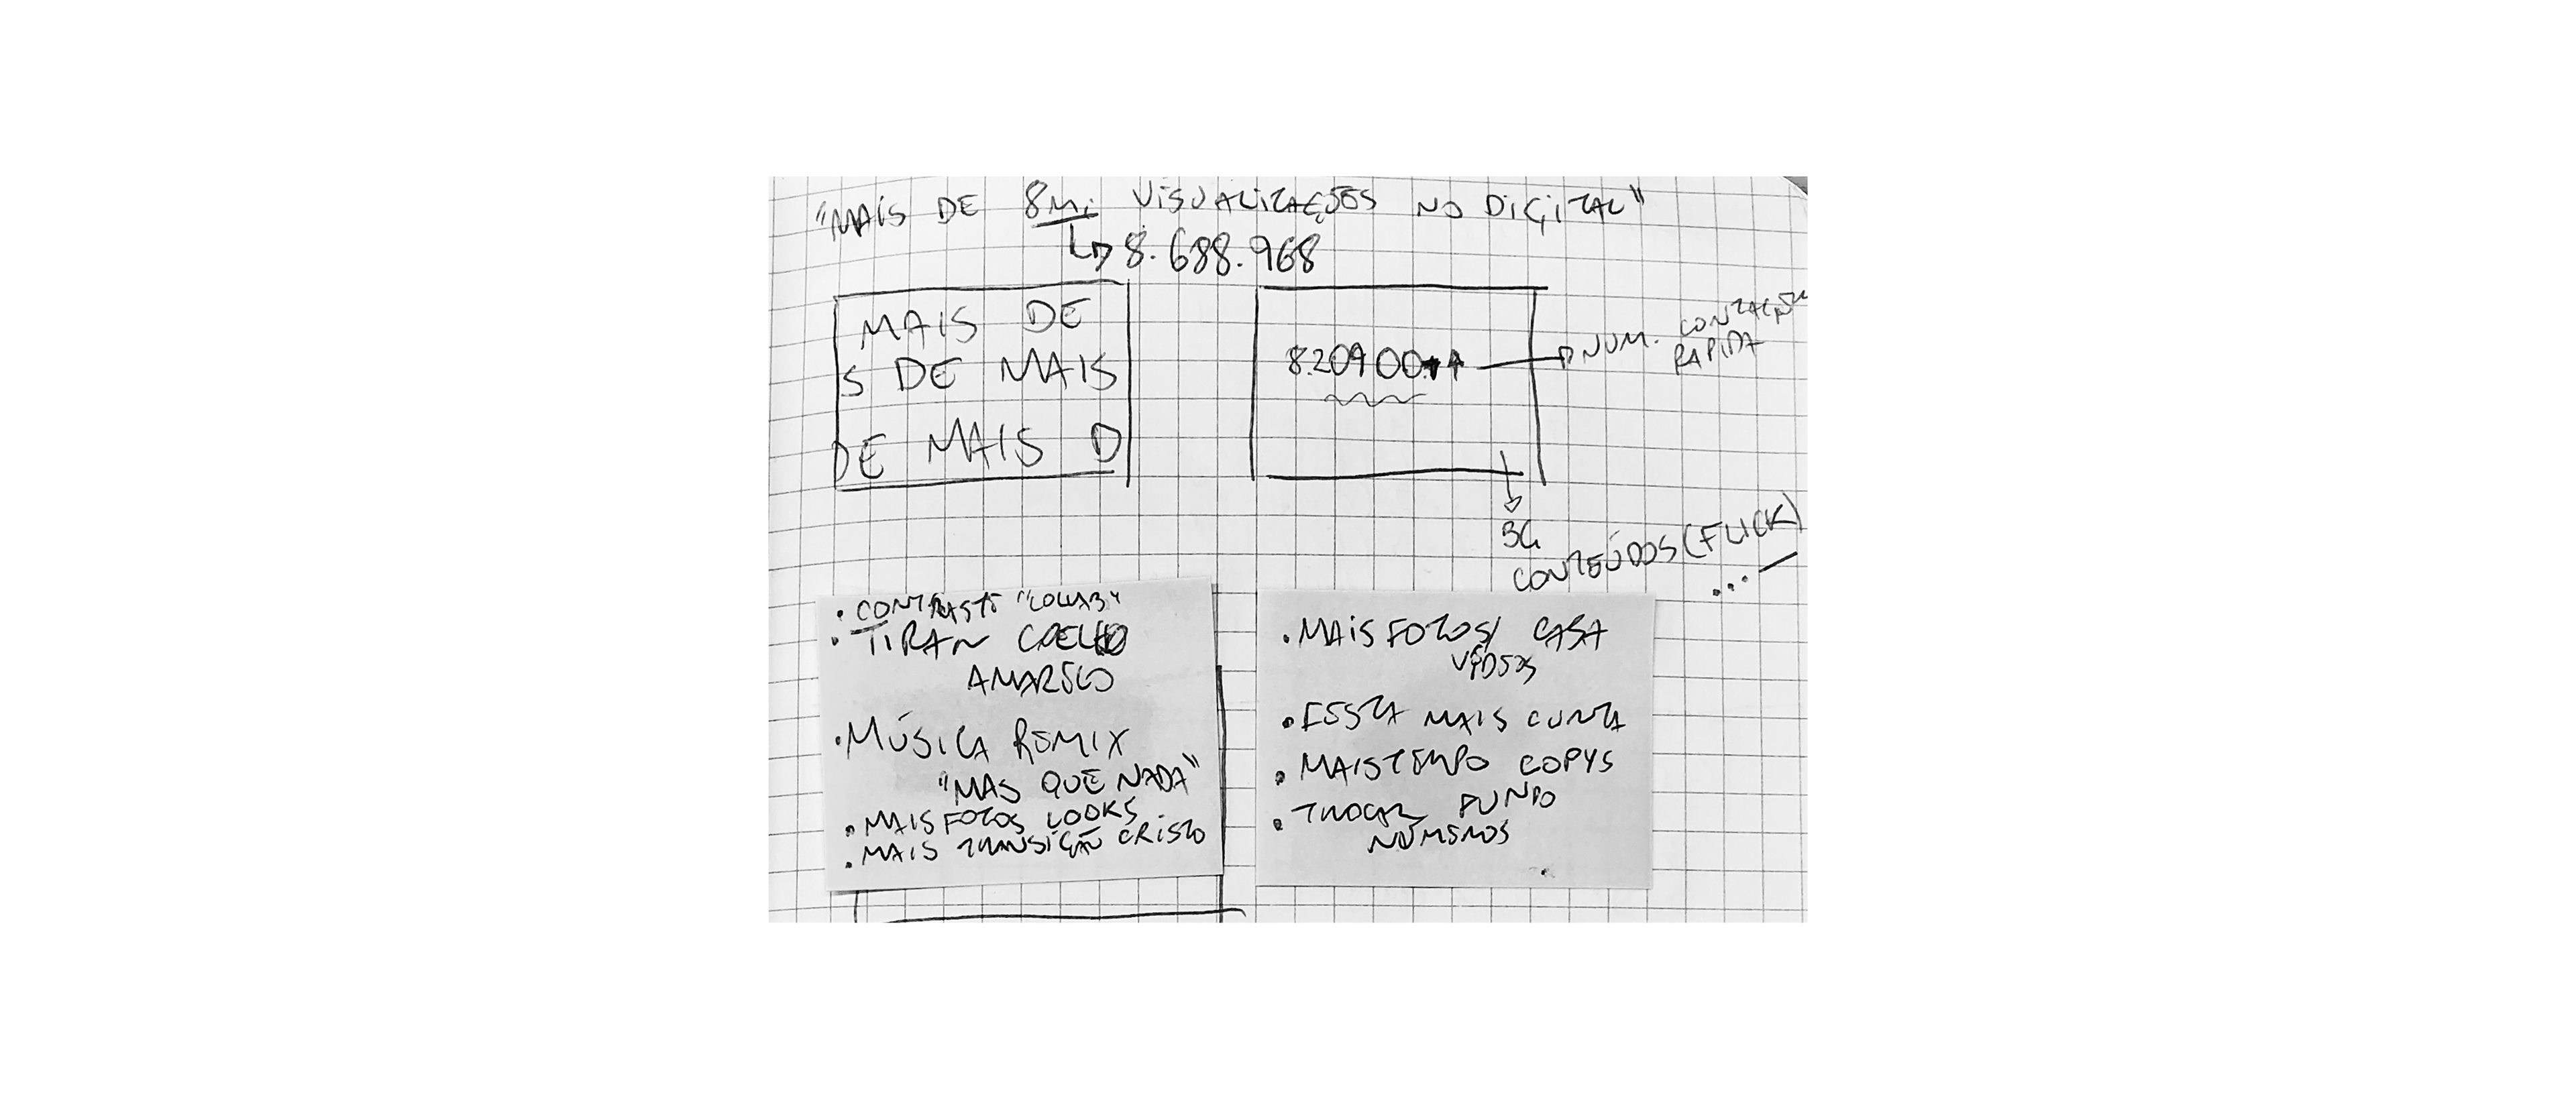 "MAIS DE 8Mi VISUALIZAÇÕES NO DIGITAL"
8.688.968
MAIS DE
S DE MAIS
DE MAIS D
8.20900
NUM. CONTAÇÃO
RÁPIDA
BG
CONTEÚDOS (FLICK)
...
• CONTRASTE "COLLAB"
• TIRAR COELHO
AMARELO
• MÚSICA REMIX
"MAS QUE NADA"
• MAIS FOTOS LOOKS
• MAIS TRANSIÇÃO CRISTO
• MAIS FOTOS/ CASA
VÍDEOS
• FESTA MAIS CURTA
• MAIS TEMPO COPYS
• TROCAR FUNDO
NÚMEROS